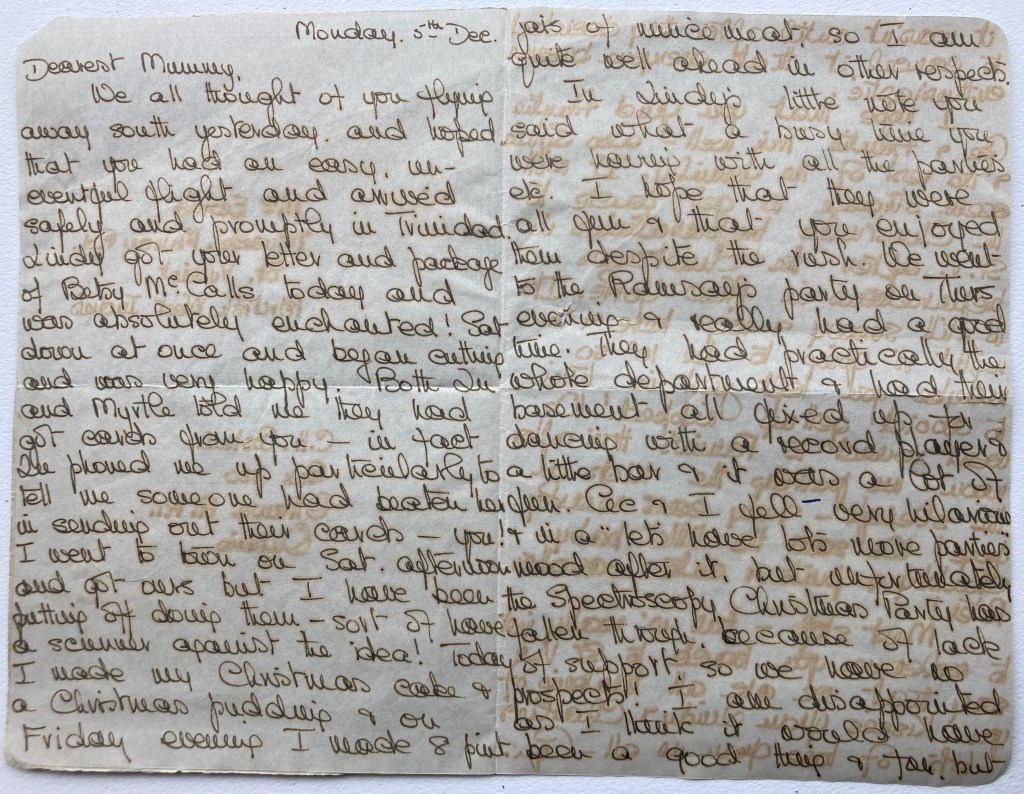 Monday. 5th Dec.
Dearest Mummy,
We all thought of you flying
away south yesterday. and hoped
that you had an easy, un-
eventful flight and arrived
safely and promptly in Trinidad
Lindy got your letter and package
of Betsy McCalls today and
was absolutely enchanted! Sat
down at once and began cutting
and was very happy. Both
and Myrtle told me they had
got cards from you – in fact
phoned me up particularly to
tell me someone had beaten her
in sending out their cards – you!
I went to town on Sat. afternoon
and got ours but I have been
putting off doing them – sort of have
a scunner against the idea! Today
I made my Christmas cake &
a Christmas pudding & on
Friday evening I made 8 pint
jars of mincemeat, so I am
quite well ahead in other respects.
In Lindy's little note you
said what a busy time you
were having with all the parties
etc. I hope that they were
all fun & that you enjoyed
them despite the rush. We went
to the Ramsay's party on Thurs
evening & really had a good
time. They had practically the
whole department & had their
basement all fixed up for
dancing with a record player &
a little bar & it was a lot of
fun. Cec & I fell – very hilarious
& in a "let's have lots more parties"
mood after it, but unfortunately
the Spectroscopy Christmas Party has
fallen through, because of lack
of support, so we have no
prospects! I am disappointed
as I think it would have
been a good thing & fun, but